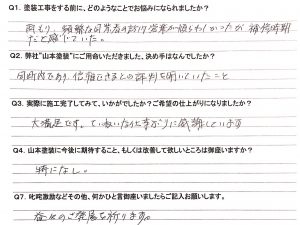 Q1. 塗装工事をする前に、どのようなことでお悩みになられましたか?
雨もり、 同業者の訪問営業が
だと感じていた。
Q2. 弊社"山本塗装"にご用命いただきました、決め手はなんでしたか?
同町内であり、信頼できるとの評判を聞いていたこと
Q3. 実際に施工完了してみて、いかがでしたか?ご希望の仕上がりになりましたか?
大満足です。ていねいな仕事ぶりに感謝しています
Q4. 山本塗装に今後に期待すること、もしくは改善して欲しいところは御座いますか?
特になし。
Q7. 叱咤激励などその他、何かひと言御座いましたらご記入お願いします。
益々のご発展を祈ります。